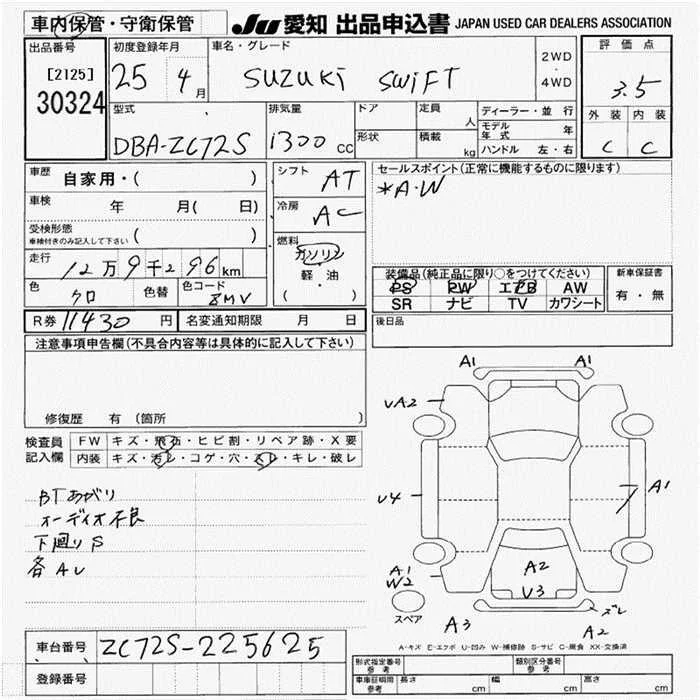 車内保管・守衛保管
JU 愛知 出品申込書 JAPAN USED CAR DEALERS ASSOCIATION
出品番号
[2125]
30324
初度登録年月
25 4月
車名・グレード
SUZUKI SWIFT
2WD
・
4WD
評価点
3.5
外装 内装
C C
型式
DBA-ZC72S
排気量
1300 CC
ドア
形状
定員 人
積載 kg
ディーラー・並行
モデル年式 年
ハンドル 左・右
車歴 自家用・( )
車検 年 月( 日)
受検形態
車検付きのみ記入して下さい ( )
走行 12万9千296km
色 クロ 色替 色コード ZMV
R券 11430 円 名変通知期限 月 日
シフト AT
冷房 AC
燃料 ガソリン
・
軽・油
( )
セールスポイント(正常に機能するものに限ります)
*A・W
装備品(純正品に限り○をつけてください)
PS PW エアB AW
SR ナビ TV カワシート
新車保証書
有・無
後日品
注意事項申告欄(不具合内容等は具体的に記入して下さい)
修復歴 有 (箇所 )
検査員記入欄
FW キズ・飛石・ヒビ割・リペア跡・X要
内装 キズ・汚レ・コゲ・穴・スレ・キレ・破レ
BTあがり
オーディオ不良
下廻りS
各AU
A1 A1
UA2
U4
A1
A1
W2
A2
U3
スペア
A3
ズレ
A2
A-キズ E-エクボ U-凹み W-補修跡 S-サビ C-腐食 XX-交換済
車台番号 ZC72S-225625
登録番号
形式指定番号
参考
類別区分番号
参考
車庫証明用
参考
長さ cm 幅 cm 高さ cm